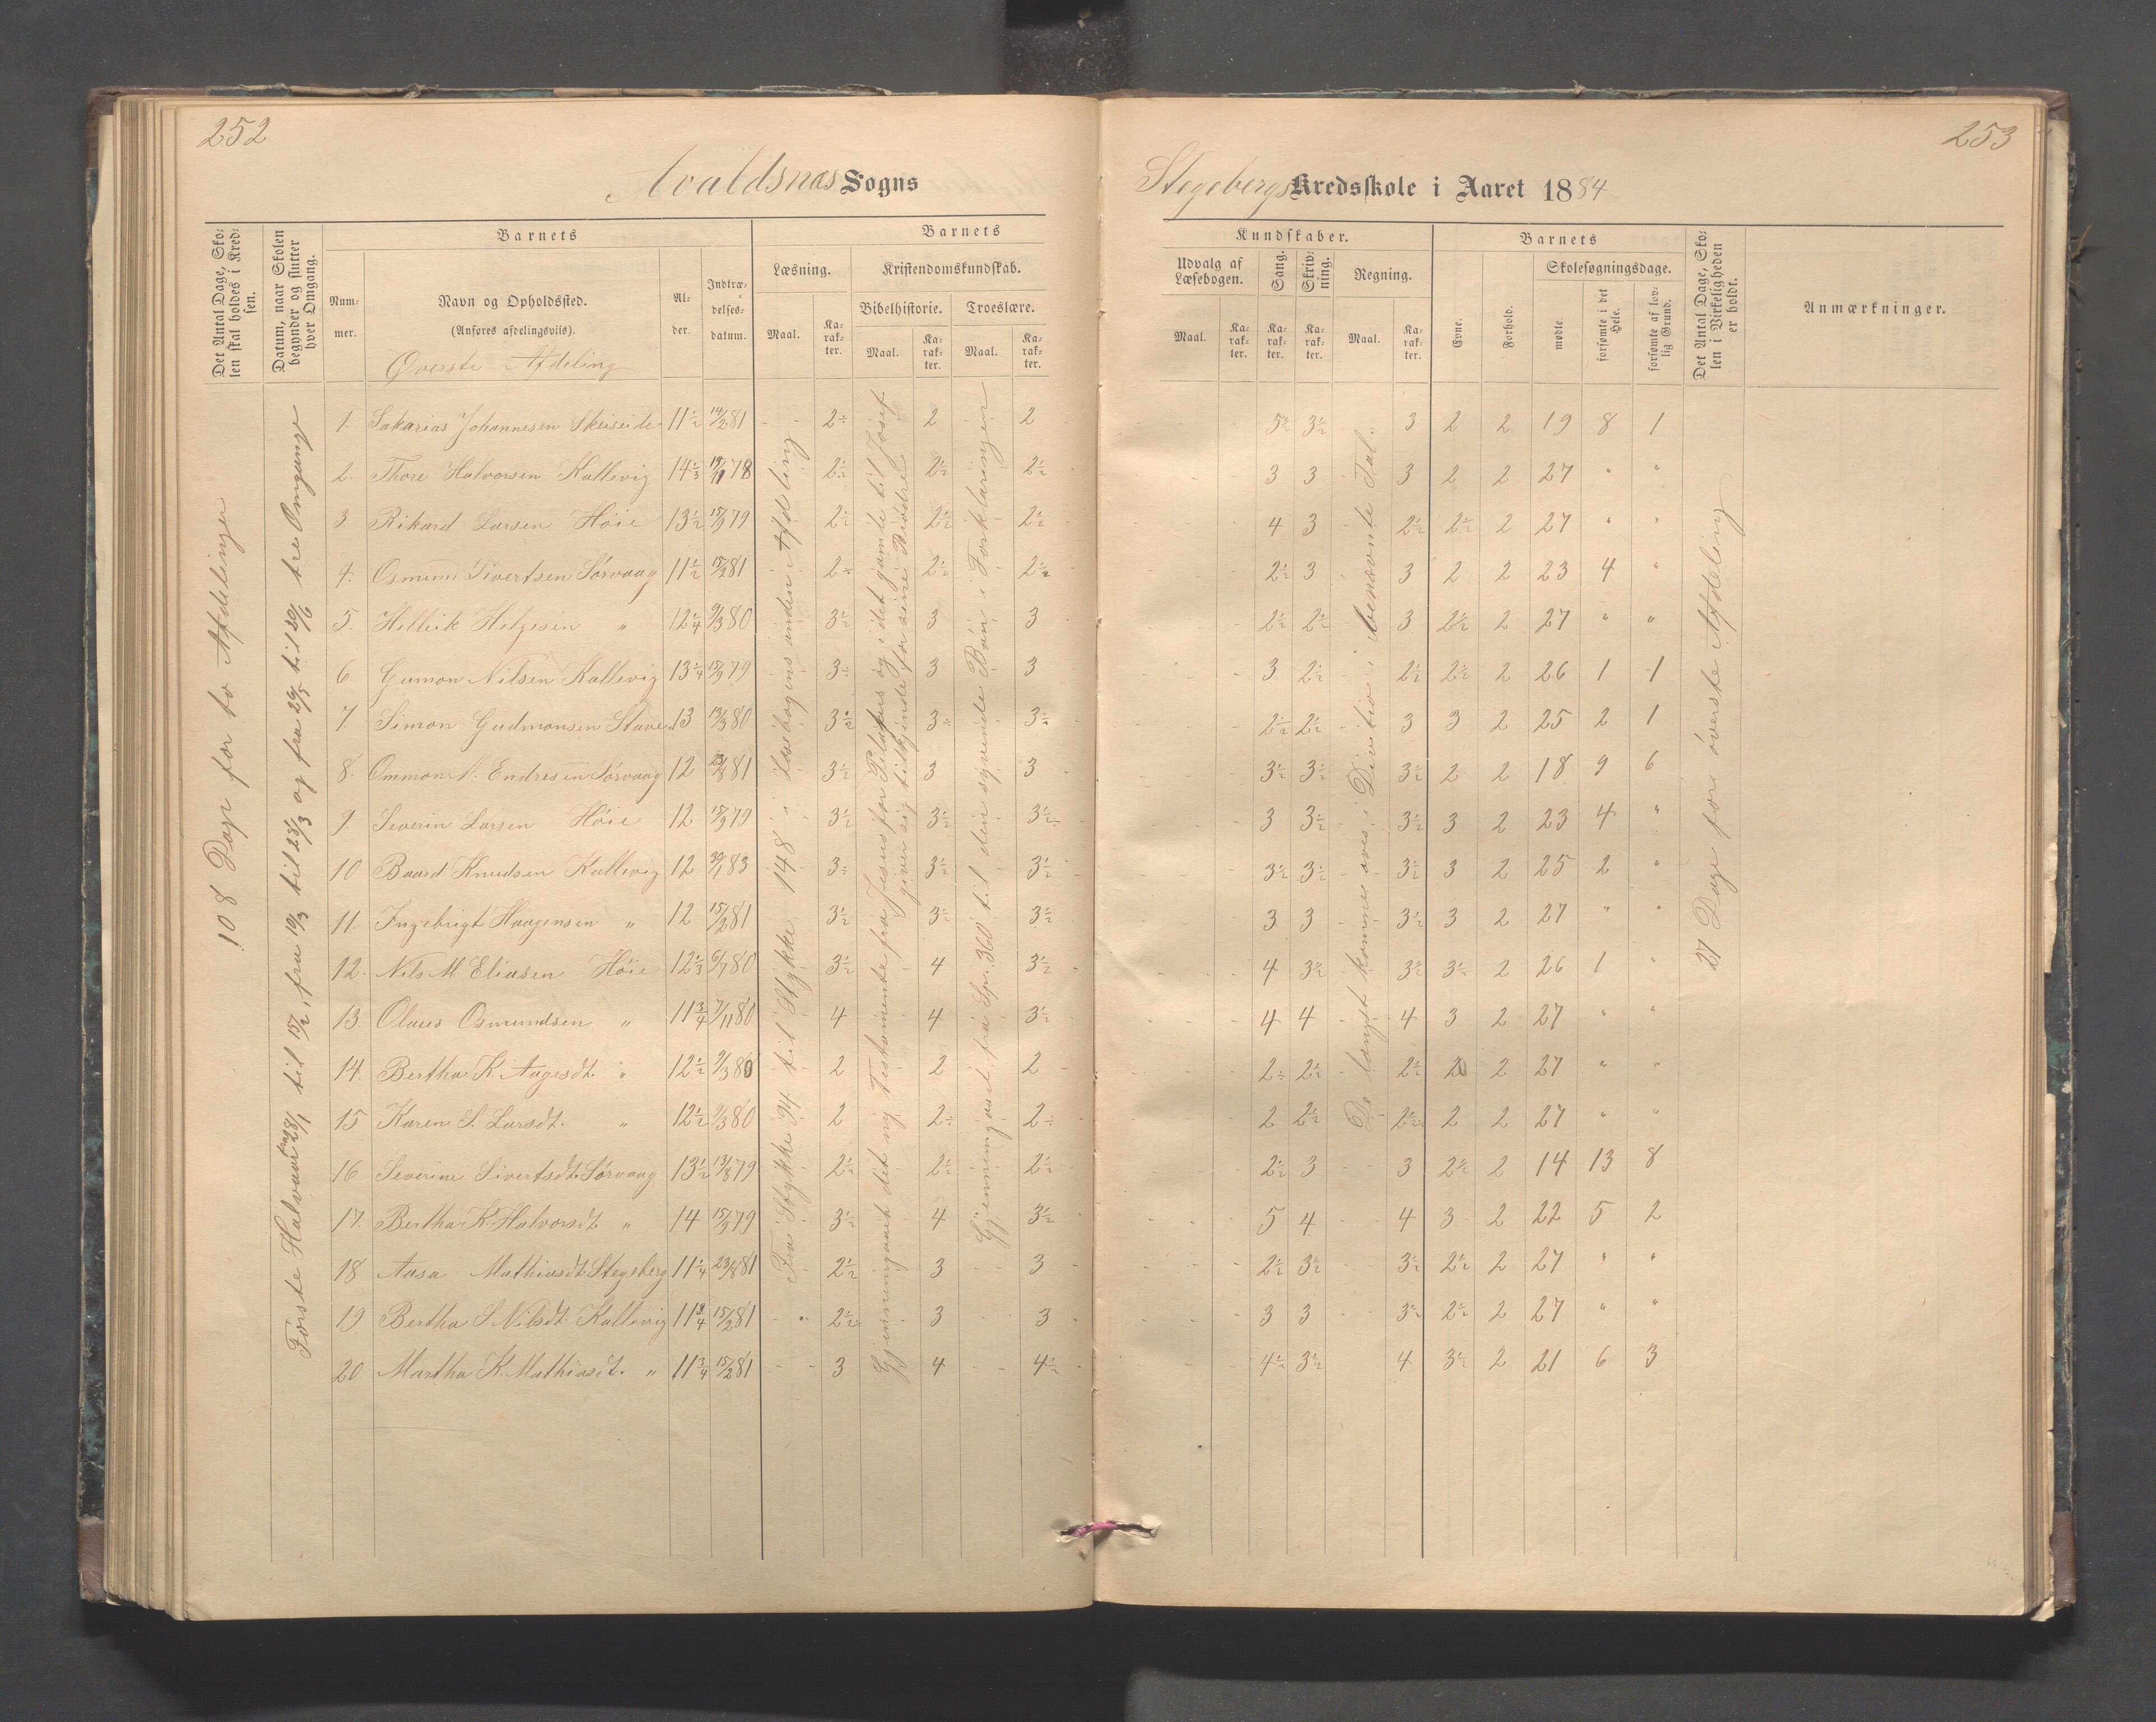 252
253
Avaldsnes Sogns
Stegebergs Kredsskole i Aaret 1884
Det Antal Dage, Skolen skal holdes i Kredsen.
Datum, naar Skolen begynder og slutter hver Omgang.
Barnets
Nummer.
Navn og Opholdssted.
(Anføres afdelingsviis).
Øverste Afdeling
Alder.
Indtrædelsesdatum.
Barnets
Læsning.
Maal.
Karakter.
Kristendomskundskab.
Bibelhistorie.
Maal.
Karakter.
Troeslære.
Maal.
Karakter.
Kundskaber.
Udvalg af Læsebogen.
Maal.
Karakter.
Sang.
Karakter.
Skrivning.
Karakter.
Regning.
Maal.
Karakter.
Barnets
Evne.
Forhold.
Skolesøgningsdage.
mødte
forsømte i det Hele.
forsømte af lovlig Grund.
Det Antal Dage, Skolen i Virkeligheden er holdt.
Anmærkninger.
108 Dage for to Afdelinger
Første Halvaar fra 28/1 til 15/2, fra 10/3 til 28/3 og fra 29/5 til 20/6 tre Omgange
Fra Stykke 94 til Stykke 148 i Læsebogens anden Afdeling
Gjennemgaaet det ny Testamente fra Jesus for Pilatus og i det gamle til Josef giver sig tilkjende for sine Brødre
Gjennemgaaet fra Spr. 360 til den syvende Bøn i Forklaringen
De længst komne øves i Division i ubenævnte Tal.
27 Dage for øverste Afdeling
1. Sakarias Johannesen Skeiseide 11 1/2 19/2 81 2÷ 2 2 5½ 3½ 3 2 2 19 8 1
2. Thore Halvorsen Kallevig 14 1/3 19/11 78 2½ 2½ 2½ 3 3 3 2 2 27 " "
3 Rikard Larsen Høie 13½ 15/9 79 2½ 2½ 2½ 4 3 2½ 2½ 2 27 " "
4. Osmund Sivertsen Sørvaag 11½ 15/2 81 2÷ 2½ 2½ 2½ 3 3 2 2 23 4 "
5. Hellik Helgesen " 12¼ 9/3 80 3½ 3 3 2½ 2½ 3 2½ 2 27 " "
6 Gumon Nilsen Kallevig 13¼ 15/9 79 3÷ 3 3 3 2½ 2½ 2½ 2 26 1 1
7. Simon Gudmonsen Stave 13 13/3 80 3½ 3÷ 3½ 2½ 2½ 3 3 2 25 2 1
8. Ommon N. Endresen Sørvaag 12 23/8 81 3½ 3 3 3½ 3½ 3½ 2 2 18 9 6
9. Severin Larsen Høie 12 15/9 79 3½ 3½ 3½ 3 3½ 3½ 3 2 23 4 "
10 Baard Knudsen Kallevig 12 30/1 83 3÷ 3½ 3½ 3½ 3½ 3½ 3 2 25 2 "
11. Ingebrigt Haagensen " 12 15/2 81 3½ 3½ 3½ 3 3 3½ 3 2 27 " "
12. Nils M Eliasen Høie 12 1/3 6/7 80 3½ 4 3½ 4 3½ 3½ 3½ 2 26 1 "
13. Olaus Osmundsen " 11¾ 7/11 80 4 4 3½ 4 4 4 3 2 27 " "
14. Bertha K Aagesdt. " 12½ 9/3 80 2 2 2 2÷ 2½ 2½ 2 2 27 " "
15 Karen S. Larsdt. " 12½ 9/3 80 2 2÷ 2÷ 2 2½ 2½ 2 2 27 " "
16 Severine Sivertsdt. Sørvaag 13½ 13/8 79 2½ 2½ 2½ 2½ 3 3 2½ 2 14 13 8
17. Bertha K Halvorsdt. " 14 15/9 79 3½ 4 3½ 5 4 4 3 2 22 5 2
18 Aasa Mathiasdt. Stegeberg 11¼ 23/8 81 2½ 3 3 2½ 3½ 3½ 2½ 2 27 " "
19 Bertha S Nilsdt. Kallevig 11¾ 15/2 81 2½ 3 3 3 3 3½ 2½ 2 27 " "
20 Martha K. Mathiasdt. " 11¾ 15/2 81 3 4 4½ 4½ 3½ 4 3½ 2 21 6 3